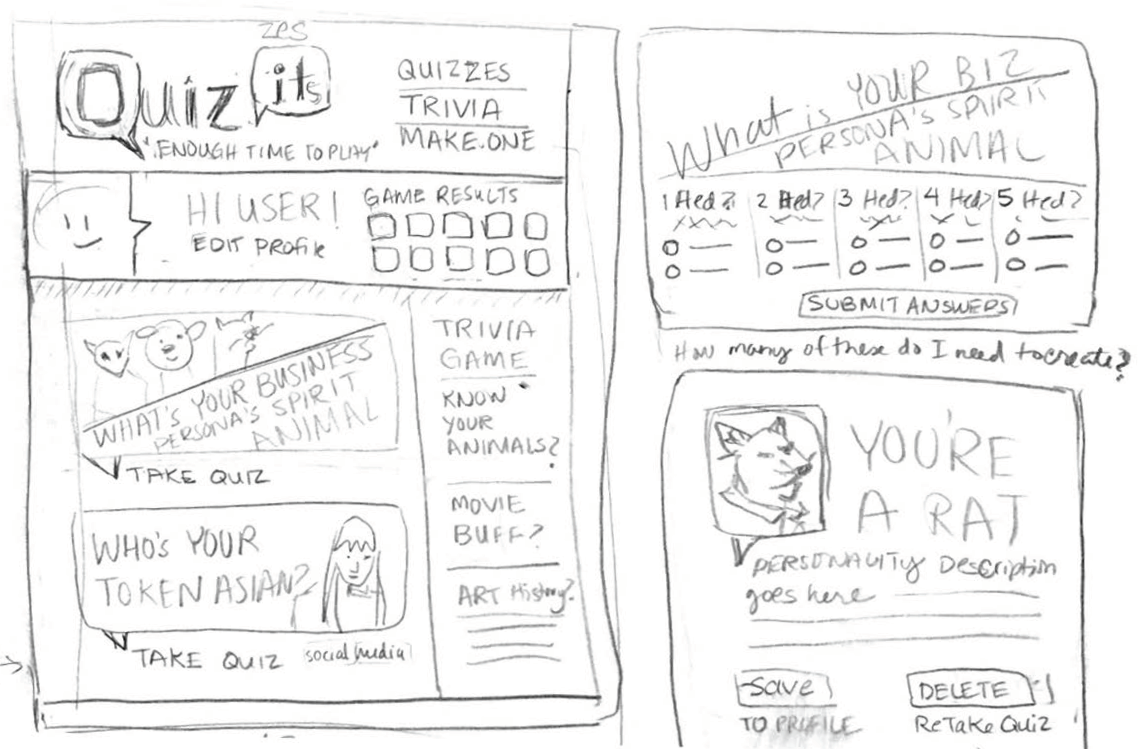 zes
Quiz its
"ENOUGH TIME TO PLAY"
QUIZZES
TRIVIA
MAKE.ONE
HI USER!
EDIT PROfile
GAME RESULTS
WHAT'S YOUR BUSINESS
PERSONA'S SPIRIT
ANIMAL
TAKE QUIZ
WHO'S YOUR
TOKEN ASIAN?
TAKE QUIZ
social media
TRIVIA
GAME
KNOW
YOUR
ANIMALS?
MOVIE
BUFF?
ART History?
What is YOUR BIZ
PERSONA'S SPIRIT
ANIMAL
1 Hed? 2 Hed? 3 Hed? 4 Hed? 5 Hed?
SUBMIT ANSWERS
How many of these do I need to create?
YOU'RE
A RAT
PERSONALITY Description
goes here
Save
TO PROFILE
DELETE
ReTake Quiz